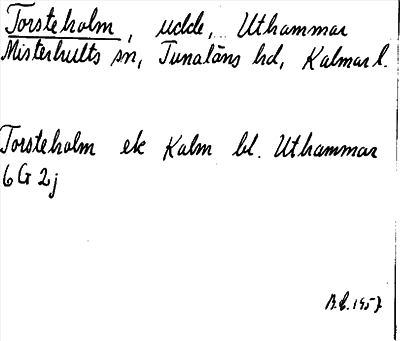 Torsteholm, udde, Uthammar
Misterhults sn, Tunaläns hd, Kalmar l.
Torsteholm ek Kalm bl. Uthammar
6 G 2j
1957